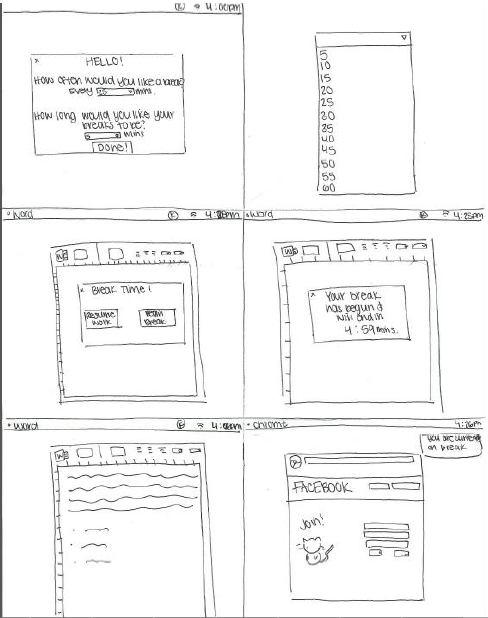 4:00pm
x HELLO!
How often would you like a break?
Every 25 mins.
How long would you like your
breaks to be?
5 mins
DONE!
5
10
15
20
25
30
35
40
45
50
55
60
Word
x Break Time!
Resume
Work
Begin
Break
Word 4:25pm
W
x Your break
has begun &
will end in
4:59 mins.
Word
W
Chrome 4:26pm
You are currently
on break
FACEBOOK
Join!